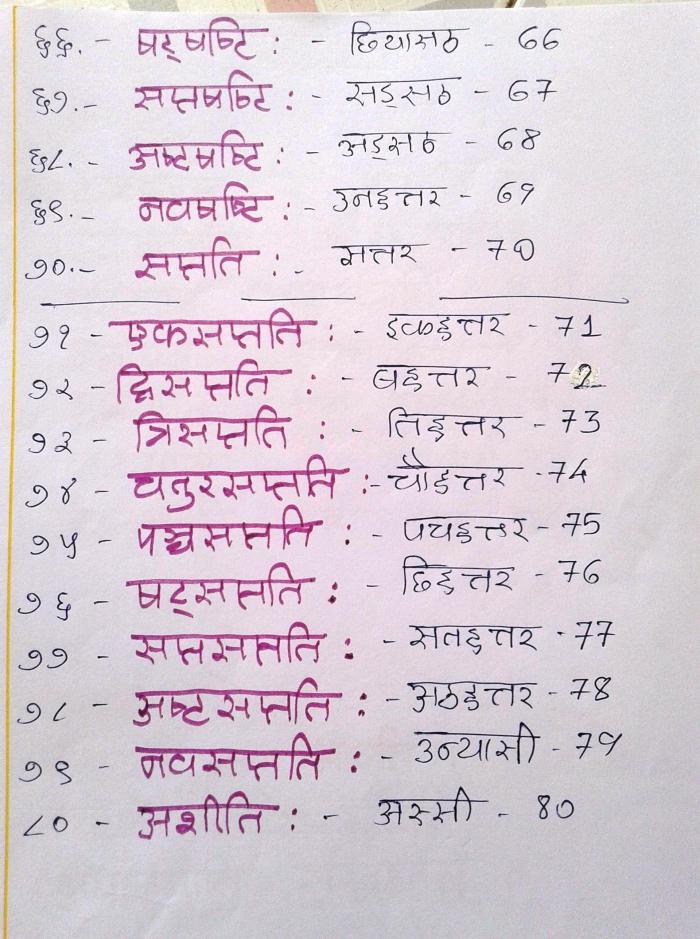 ६६.- षट्षष्टि: - छियासठ - 66
६७.- सप्तषष्टि: - सड़्सठ - 67
६८.- अष्टषष्टि: - अड़्सठ - 68
६९.- नवषष्टि: - उनहत्तर - 69
७०.- सप्तति: - सत्तर - 70
७१ - एकसप्तति: - इकहत्तर - 71
७२ - द्विसप्तति: - बहत्तर - 72
७३ - त्रिसप्तति: - तिहत्तर - 73
७४ - चतुरसप्तति: - चौहत्तर - 74
७५ - पञ्चसप्तति: - पचहत्तर - 75
७६ - षट्सप्तति: - छिहत्तर - 76
७७ - सप्तसप्तति: - सतहत्तर - 77
७८ - अष्टसप्तति: - अठहत्तर - 78
७९ - नवसप्तति: - उन्यासी - 79
८० - अशीति: - अस्सी - 80